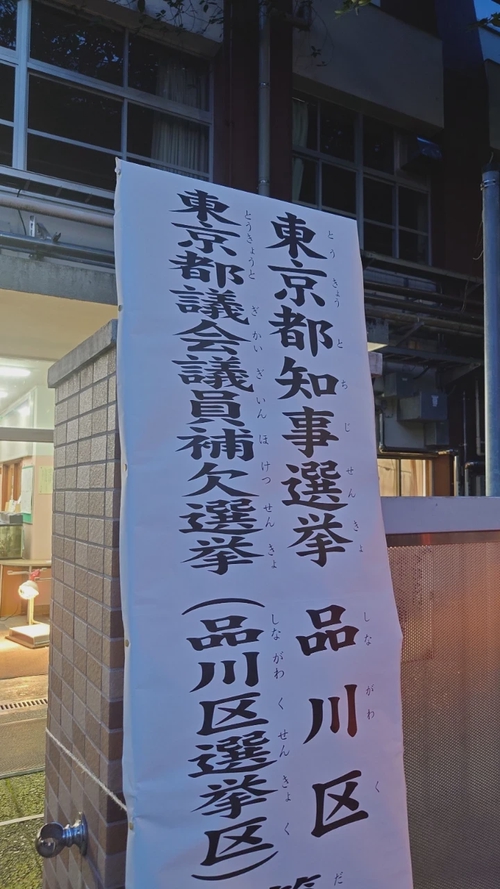 東京都知事選挙 品川区
とうきょうとちじせんきょ しながわく
東京都議会議員補欠選挙(品川区選挙区)
とうきょうとぎかいぎいんほけつせんきょ しながわくせんきょく